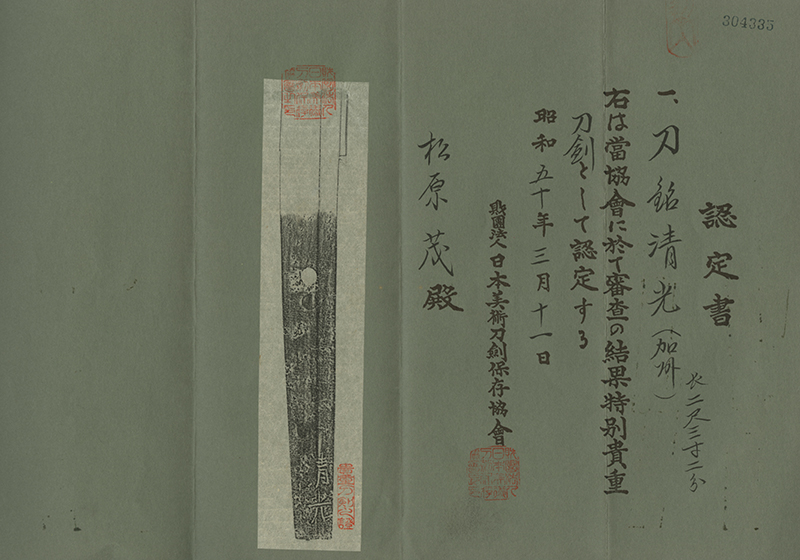 304335
認定書
一、刀 銘 清光（加州）
長二尺三寸二分
右は當協會に於て審査の結果特別貴重
刀劍として認定する
昭和五十年三月十一日
財團法人日本美術刀劍保存協會
松原茂殿
清光